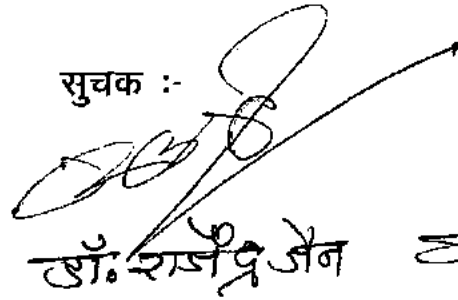 सुचक :-
डॉ. राजेंद्र जैन